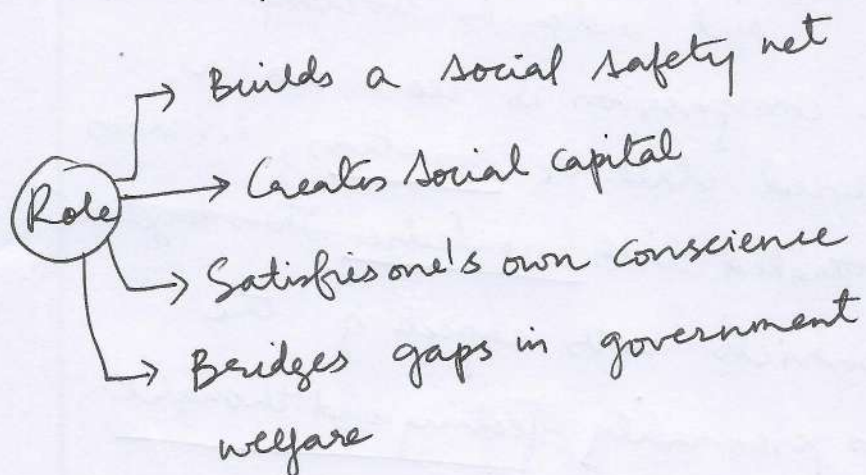 Builds a social safety net
Role
Creates social capital
Satisfies one's own conscience
Bridges gaps in government
welfare